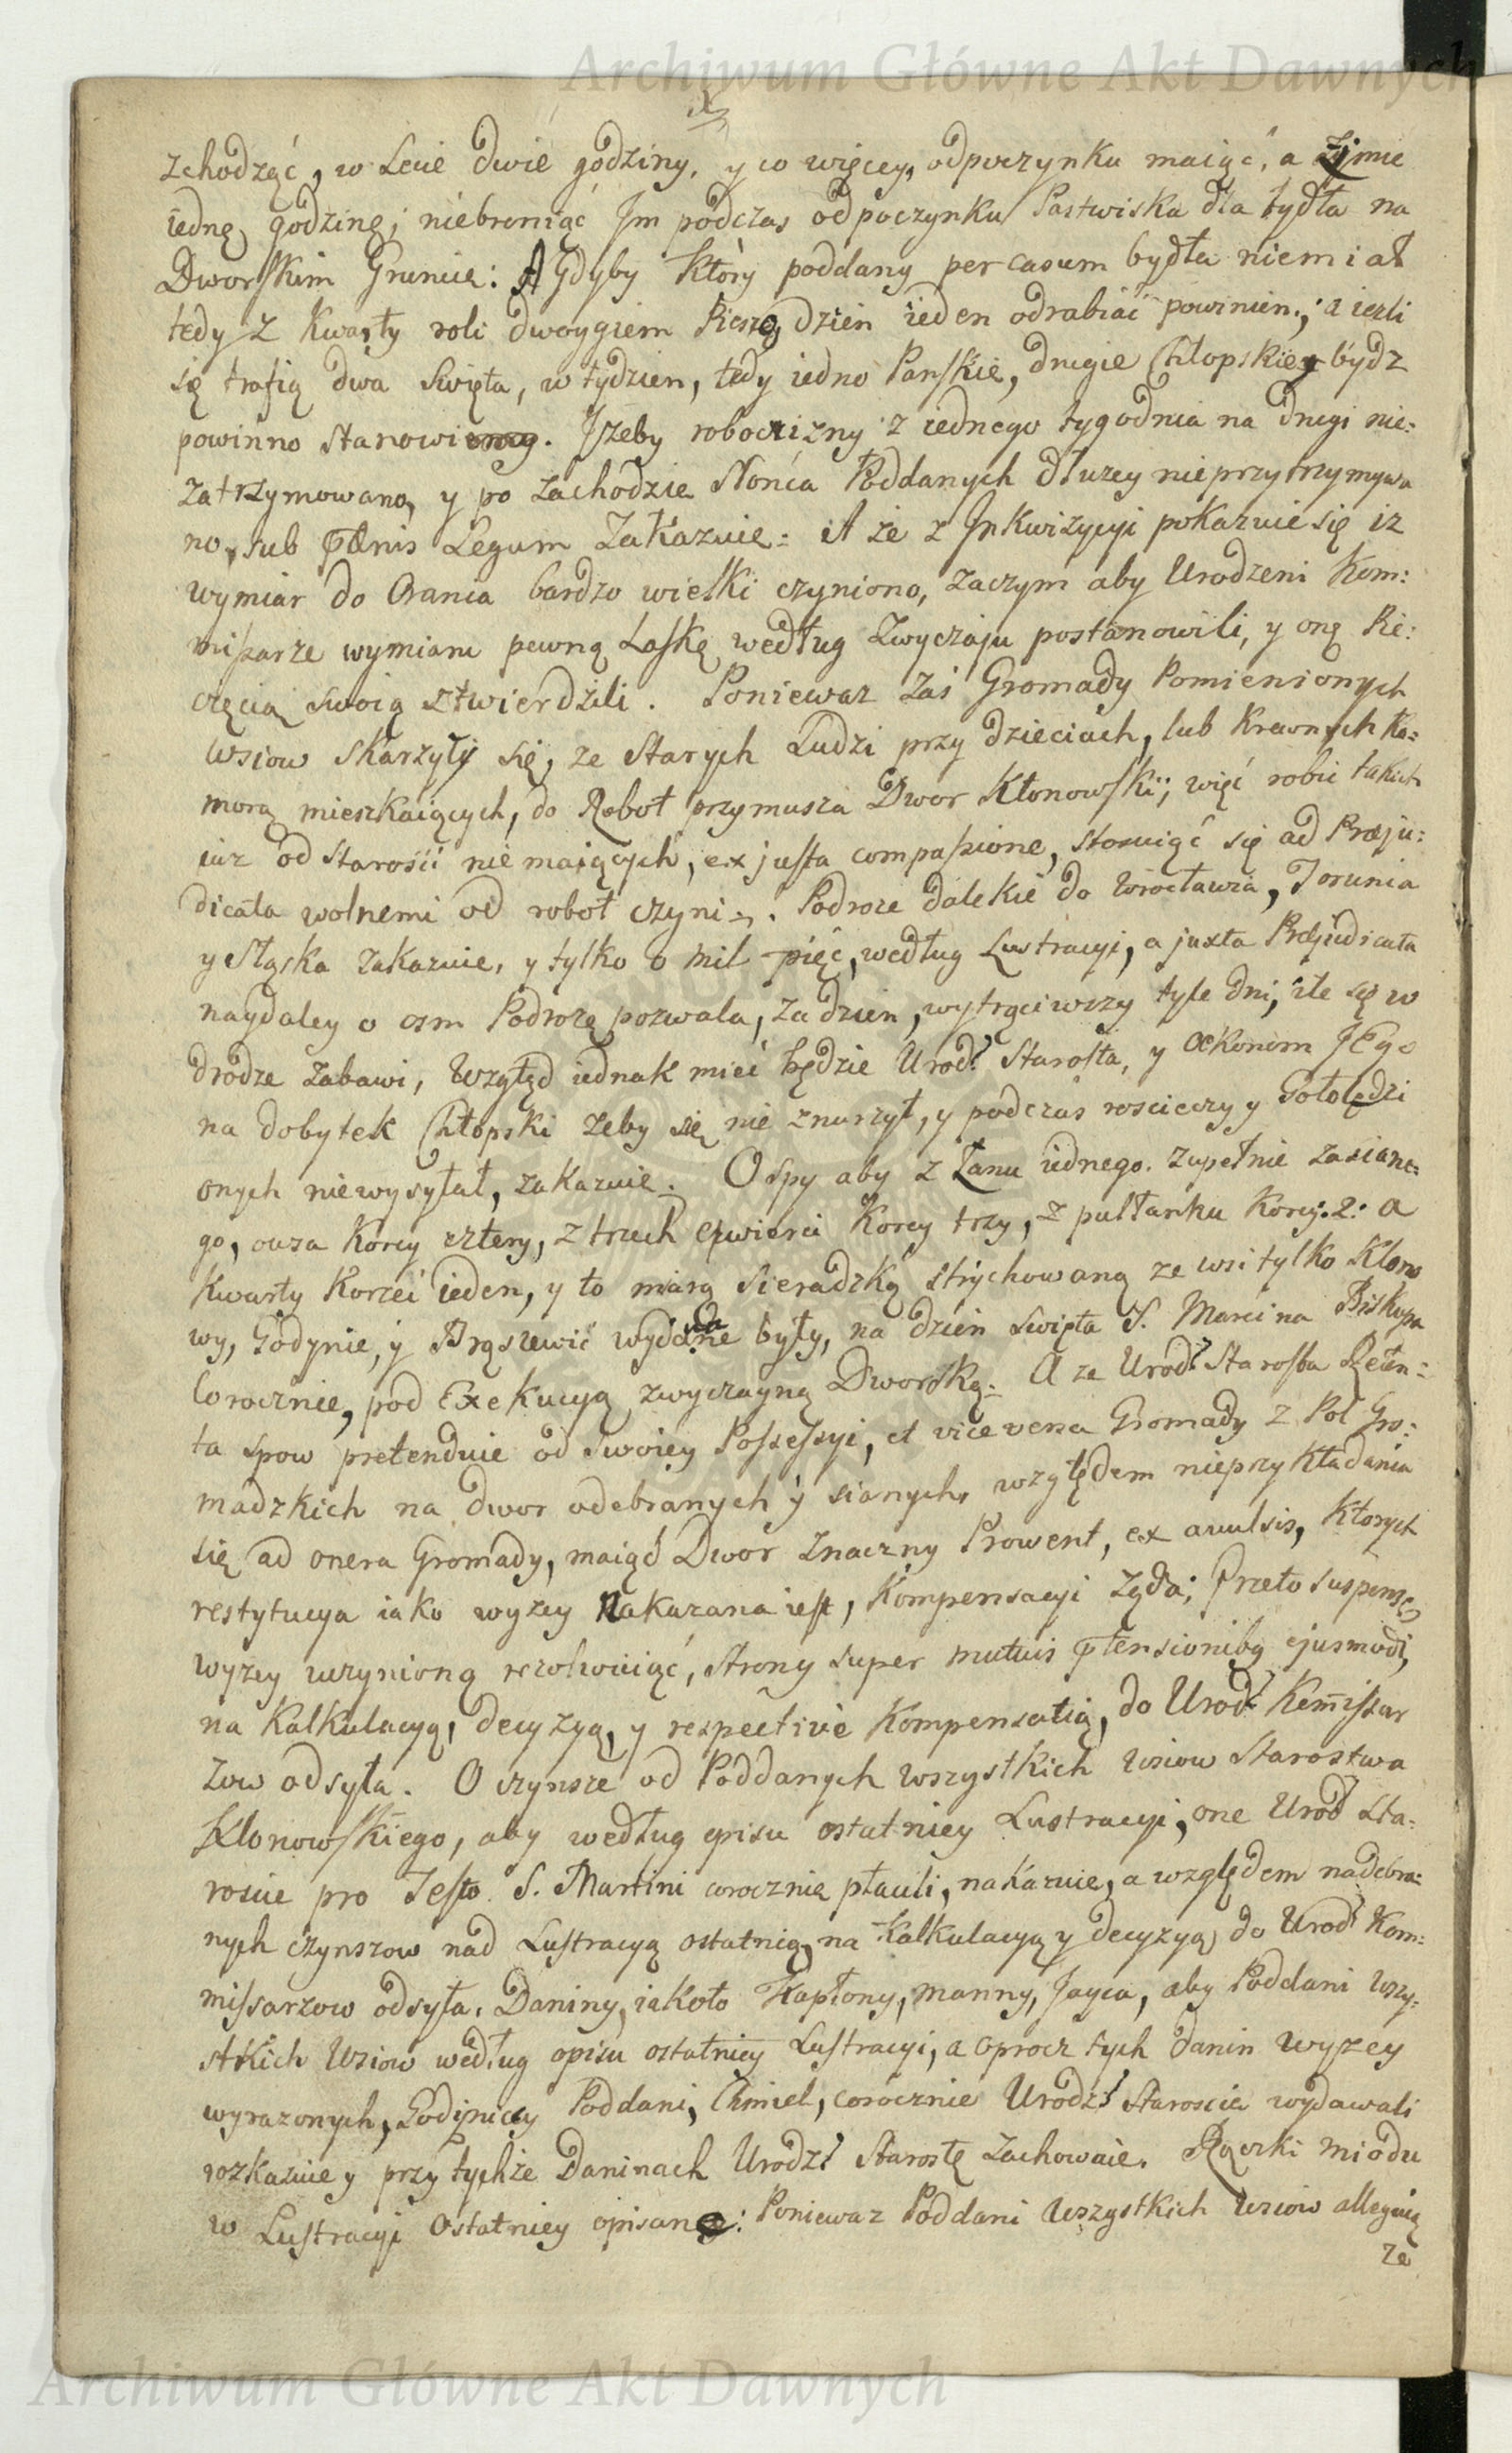 Archiwum Główne Akt Dawnych
zchodząć, w Lecie dwie godziny, y co więcey, odpoczynku maiąć, a Zimie
iednę godzinę; niebroniąć Jm podczas odpoczynku Pastwiska dla bydła na
Dworskim Gruncie: A Gdyby Który poddany per casum bydła niemiał
tedy z Kwarty roli dwoygiem Pieszo, dzień ieden odrabiać powinien; a iezli
się trafią dwa Swięta, w tydzien, tedy iedno Panskie, drugie Chłopskie bydz
powinno Stanowi. Jżeby robocizny z iednego tygodnia na drugi nie:
zatrzymowano, y po zachodzie Słońca Poddanych dłuzey nieprzytrzymywa
no, sub pænis Legum Zakazuie: A że z Jnkwizycyi pokazuie się iz
wymiar do Orania bardzo wielki czyniono, zaczym aby Urodzeni Kom:
missarze wymiaru pewną Laskę według Zwyczaju postanowili, y onę Pie:
częcią swoią ztwierdzili. Poniewaz zaś Gromady Pomienionych
Wsiow Skarzyły się, ze Starych Ludzi przy dzieciach, lub Krewnych Ko:
morą mieszkaiących, do Robot przymusza Dwor Kłonowski; więć robic takich
iuz od Starości niemaiących, ex justa compassione, stosuiąć się ad Præju:
dicata wolnemi od robot czyni. Podroze dalekie do Wrocławia, Torunia
y Sląska zakazuie, y tylko o mil pięć, według Lustracyi, a juxta Præjudicata
naydaley o osm Podrozę pozwala, za dzien, wytrąciwszy tyle dni, ile się w
drodze zabawi, Wzgląd iednak mieć będzie Urodz. Starosta, y Œkonom JEgo
na dobytek Chłopski zeby się nie znurzył, y podczas roscieczy y Gołolędzi
onych niewysyłał, zakazuie. Ospy aby z Łanu iednego zupełnie zasiane:
go, owsa Korcy cztery, z trzech czwierci Korcy trzy, z pułłanku Korcy: 2: a
Kwarty Korzeć ieden, y to miarą Sieradzką strychowaną ze wsi tylko Klono
wy, Godynic, y Brąszewic wydane były, na dzien Swięta S. Marcina Biskupa
Corocznie, pod Exekucyą zwyczayną Dworską: A ze Urodz. Starosta Reten:
ta spow pretenduie od swoiey Possessyi, et vice versa Gromady z Pol Gro:
madzkich na dwor odebranych y sianych, względem nieprzykładania
się ad onera Gromady, maiąć Dwor znaczny Prowent, ex avulsis, Ktorych
restytucya iako wyzey Nakazana iest, Kompensacyi Ząda; Przeto suspensę
wyzey uczynioną rezolwuiąć, strony super mutuis ptensionibg ejusmodi,
na Kalkulacyą, decyzyą, y respective Kompensatią, do Urodz. Kommissar
zow odsyła. O czynsze od Poddanych wszystkich Wsiow Starostwa
Klonowskiego, aby według opisu ostatniey Lustracyi, one Urodz. Sta:
roscie pro Festo S. Martini corocznie płacili, nakazuie, a względem nadebra:
nych czynszow nad Lustracyą ostatnią, na Kalkulacyą y decyzyą, do Urodz. Kom:
missarzow odsyła. Daniny, iakoto Kapłony, manny, Jayca, aby Poddani wszy:
stkich Wsiow według opisu ostatniey Lustracyi, a oprocz tych danin wyzey
wyrazonych, Godyniccy Poddani, Chmiel, corocznie Urodz. Staroscie wydawali
rozkazuie y przy tychże Daninach Urodz. Starostę zachowuie. Rączki miodu
w Lustracyi Ostatniey opisane: Poniewaz Poddani Wszystkich Wsiow alleguią
ze
Archiwum Główne Akt Dawnych